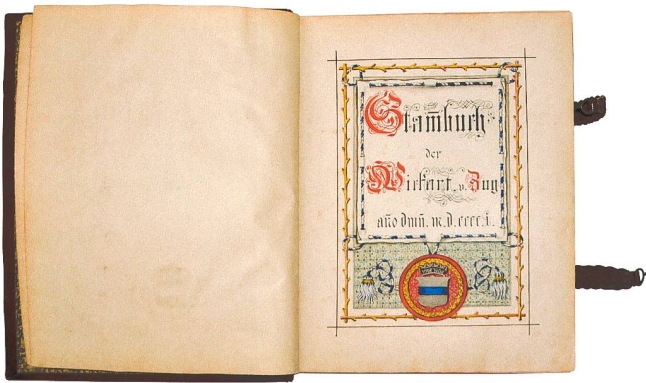 Stam̄buch
der
Wickart v. Zug
año dm̄ñ. m.D.cccc.i.